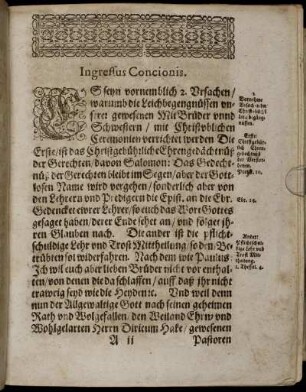 Ingressus Concionis.
ES seyn vornemblich 2. Vrsachen/
warumb die Leichbegengnüssen vn-
serer gewesenen Mit Brüder vnnd
Schwestern / mit Christüblichen
Ceremonien verrichtet werden Die
Erste / ist das Christgebührliche Ehrengedächtnüß
der Gerechten / davon Salomon: Das Gedecht-
nüß der Gerechten bleibt im Segen / aber der Gott-
losen Name wird vergehen / sonderlich aber von
den Lehrern vnd Predigern die Epist. an die Ebr.
Gedencket ewrer Lehrer / so euch das Wort Gottes
gesaget haben / derer Ende sehet an / vnd folget ih-
rem Glauben nach. Die ander ist die pflicht-
schuldige Lehr vnd Trost Mittheilung / so den Be-
trübten sol widerfahren. Nach dem wie Paulus:
Ich wil euch aber lieben Brüder nicht vor enthal-
ten / von denen die da schlaffen / auff daß ihr nicht
trawrig seyd wie die Heyden etc. Vnd weil denn
nun der Allgewaltige Gott nach seinen geheimen
Rath vnd Wolgefallen, den Weiland Ehrw. vnd
Wohlgelarten Herrn Diricum Hake / gewesenen
A ii
Pastoren
2.
Vornehme
Erste
Prov. 10.
Ebr. 13.
Ander
Pflichtschul-
dige Lehr vnd
Trost Mit-
theilung.
1. Thessal. 4.